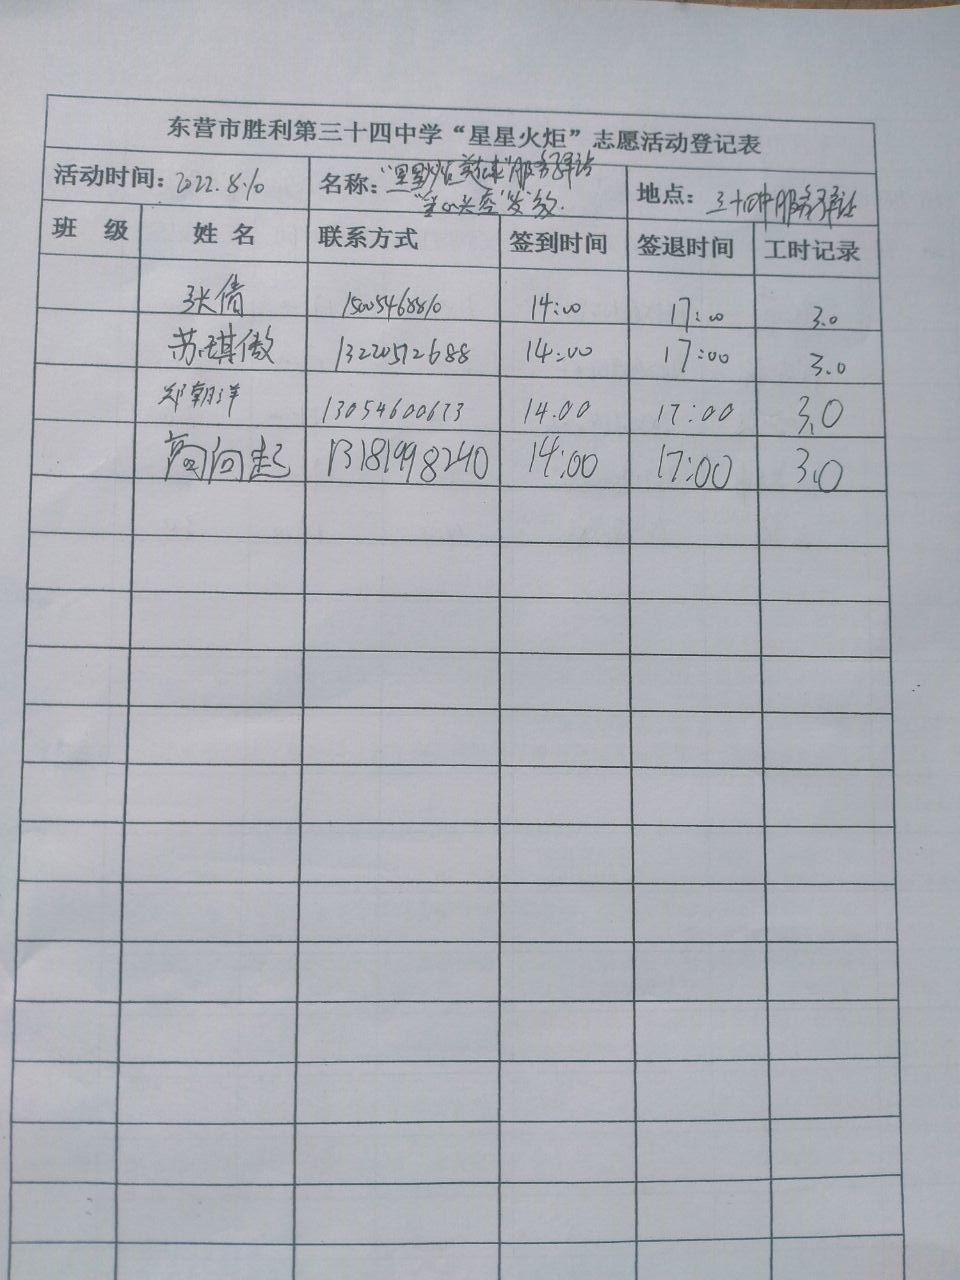 东营市胜利第三十四中学“星星火炬”志愿活动登记表
活动时间：2022.8.10 名称：“星星火炬 服务驿站 地点：三十四中服务驿站
发放.
班 级 姓 名 联系方式 签到时间 签退时间 工时记录
张倩 15005468810 14:00 17:00 3.0
苏琪傲 13220512688 14:00 17:00 3.0
郑朝洋 13054600673 14.00 17:00 3.0
高向起 13181998240 14:00 17:00 3.0